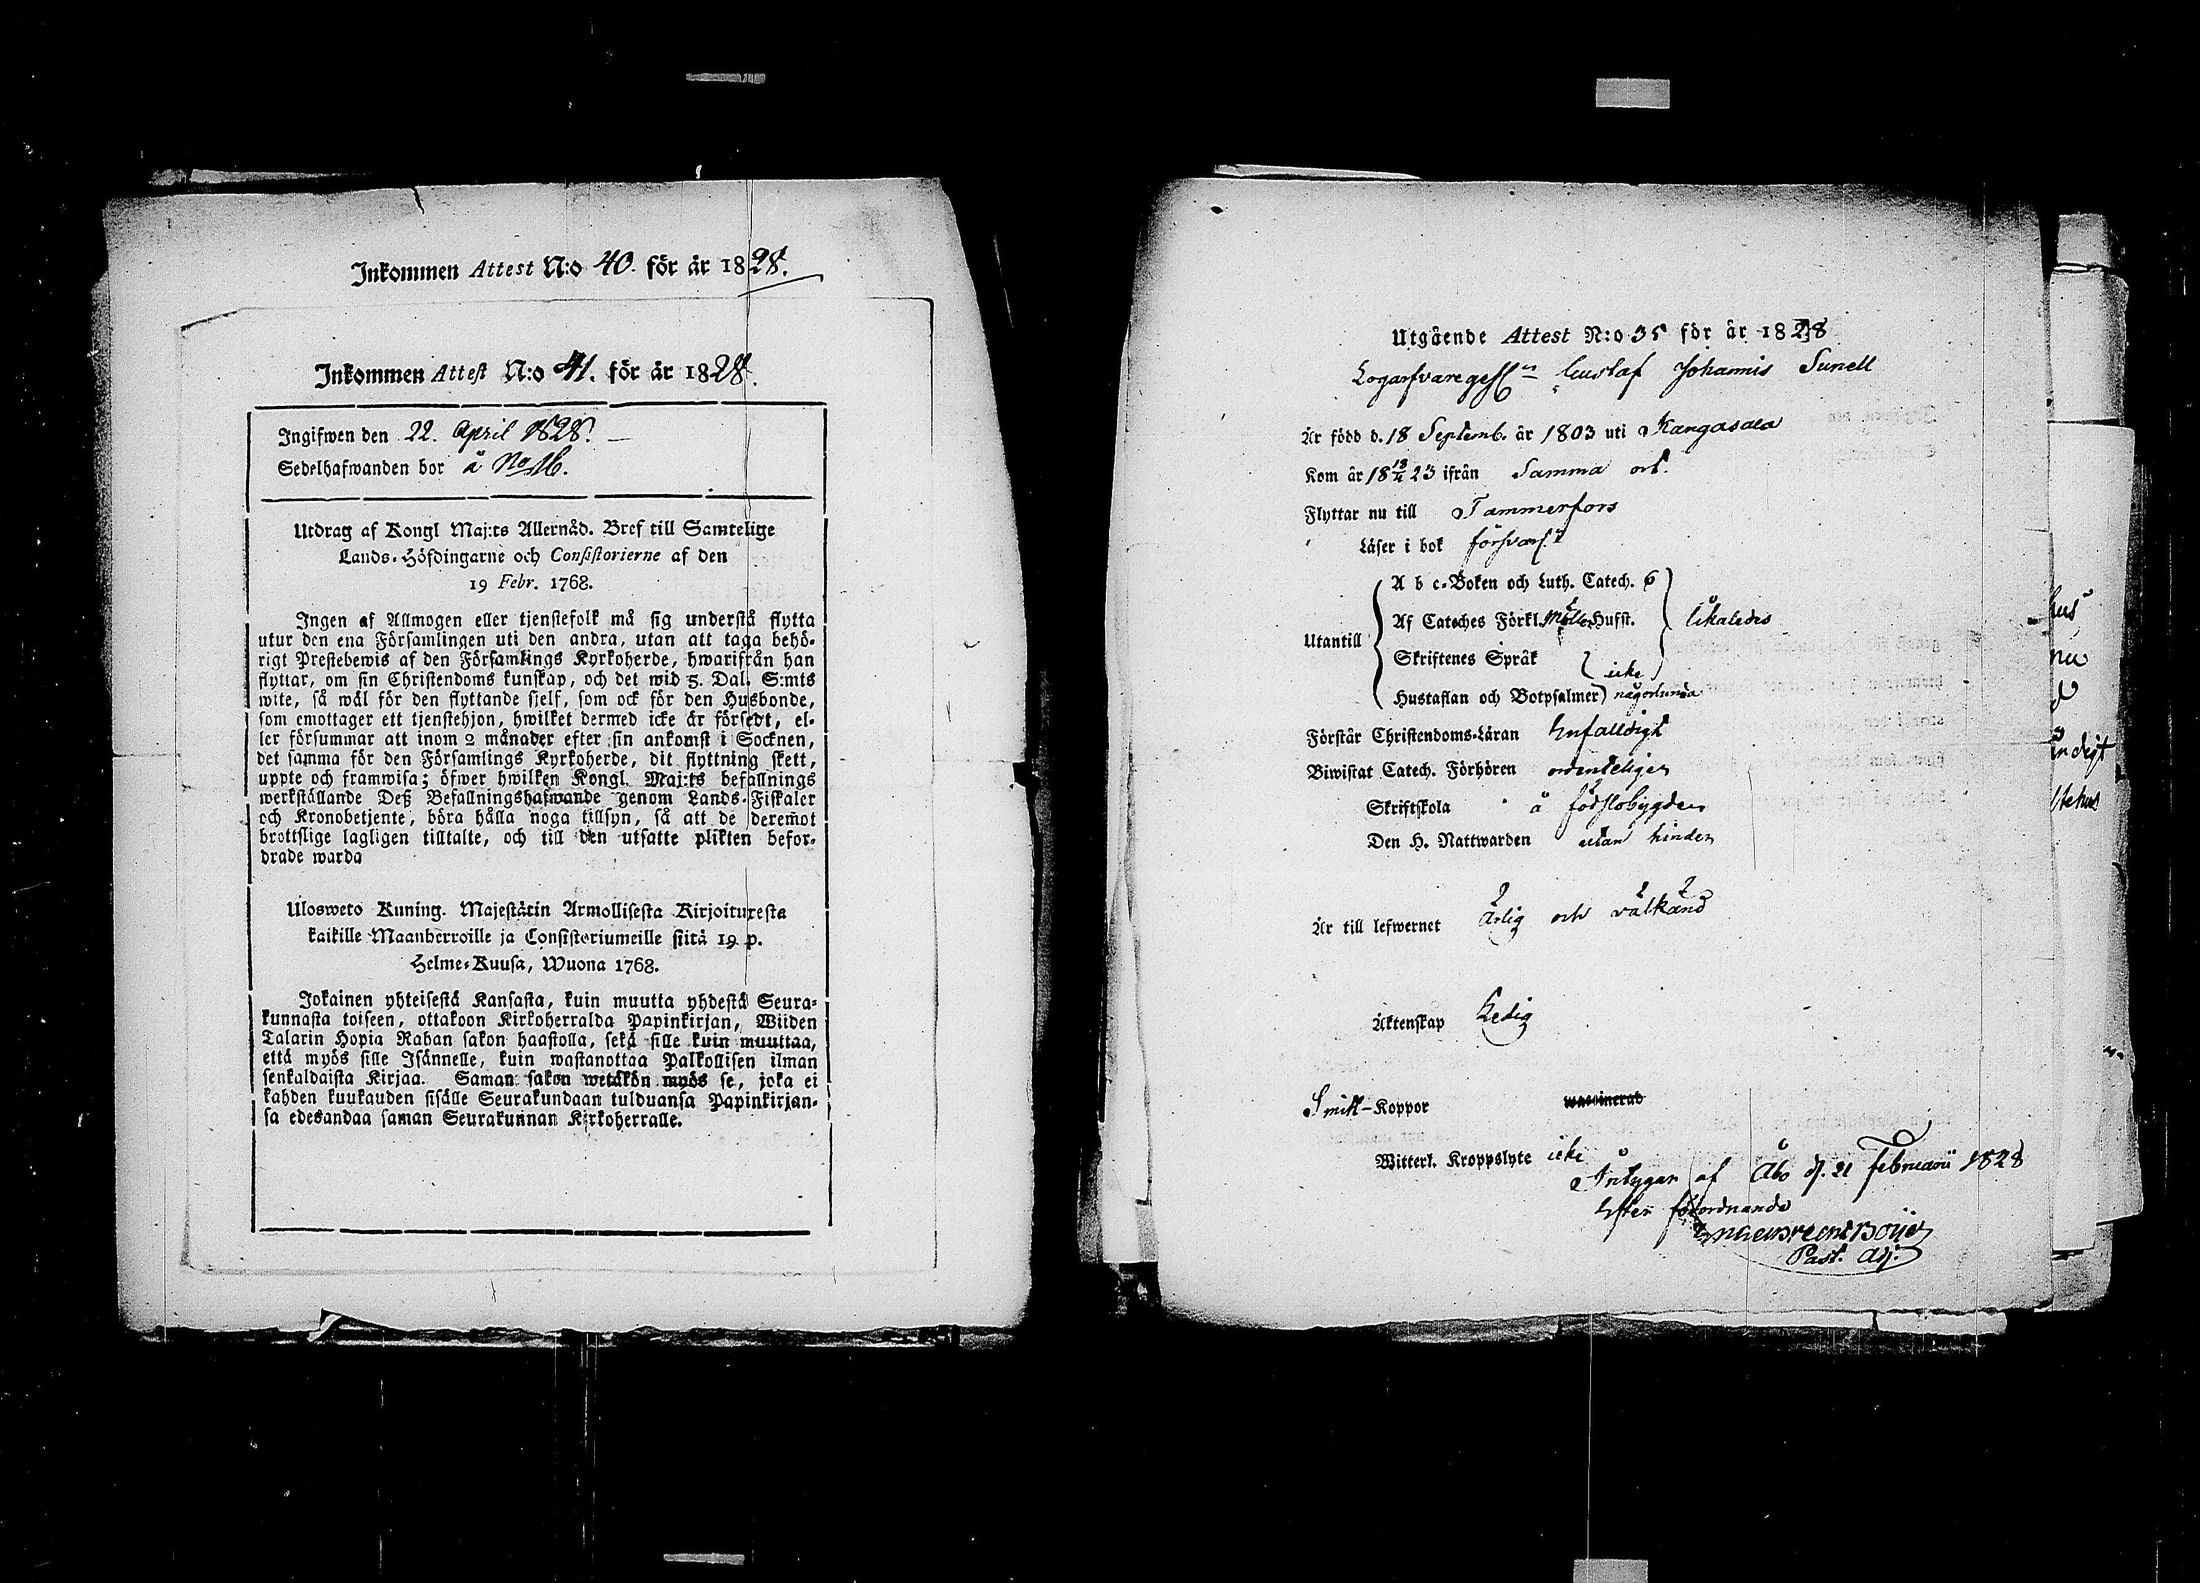 Inkommen Attest N:o 40. för år 1828.
Inkommen Attest N:o 41. för år 1828.
Ingifwen den 22. April 1828.
Sedelhafwanden bor å No 16.
Utdrag af Kongl Maj:ts Allernåd. Bref till Samtelige
Lands-Höfdingarne och Consistorierne af den
19 Febr. 1768.
Ingen af Allmogen eller tjenstefolk må sig understå flytta
utur den ena Församlingen uti den andra, utan att taga behö-
rigt Prestebewis af den Församlings Kyrkoherde, hwarifrån han
flyttar, om sin Christendoms kunskap, och det wid 5. Dal. S:mts
wite, så wäl för den flyttande sjelf, som ock för den Husbonde,
som emottager ett tjenstehjon, hwilket dermed icke är försedt, el-
ler försummar att inom 2 månader efter sin ankomst i Socknen,
det samma för den Församlings Kyrkoherde, dit flyttning skett,
uppte och framwisa; öfwer hwilken Kongl. Maj:ts befallnings
werkställande Deß Befallningshafwande genom Lands-Fiskaler
och Kronobetjente, böra hålla noga tillsyn, så att de deremot
brottslige lagligen tilltalte, och till den utsatte plikten befor-
drade warda
Ulosweto Kuning. Majestätin Armollisesta Kirjoituxesta
kaikille Maanherroille ja Consistoriumeille siitä 19 p.
Helme-Kuusa, Wuona 1768.
Jokainen yhteisestä Kansasta, kuin muutta yhdestä Seura-
kunnasta toiseen, ottakoon Kirkoherralda Papinkirjan, Wiiden
Talarin Hopia Rahan sakon haastolla, sekä sille kuin muuttaa,
että myös sille Isännelle, kuin wastanottaa Palkollisen ilman
senkaldaista Kirjaa. Saman sakon wetäkön myös se, joka ei
kahden kuukauden sisälle Seurakundaan tulduansa Papinkirjan-
sa edesandaa saman Seurakunnan Kirkoherralle.
Utgående Attest N:o 35 för år 1828
Gustaf Johannis Sunell
Är född d. 18 Septemb. år 1803 uti Kangasala
Kom år 18 13/4 23 ifrån Samma ort.
Flyttar nu till Tammerfors
Läser i bok försvarl.t
Utantill
A b c-Boken och Luth. Catech. 6
Af Cateches Förkl. Hufst.
likaledes
Skriftenes Språk icke
Hustaflan och Botpsalmer någorlunda
Förstår Christendoms-Läran Enfalldigt
Biwistat Catech. Förhören ordenteligen
Skriftskola å födslobygden
Den H. Nattwarden utan hinder
Är till lefwernet ärlig och välkänd
Äktenskap Ledig
Smitt-Koppor waccinerad
Witterl. Kroppslyte icke
Intygar af Åbo d. 21 Februarii 1828
Efter förordnande
Past. Adj.